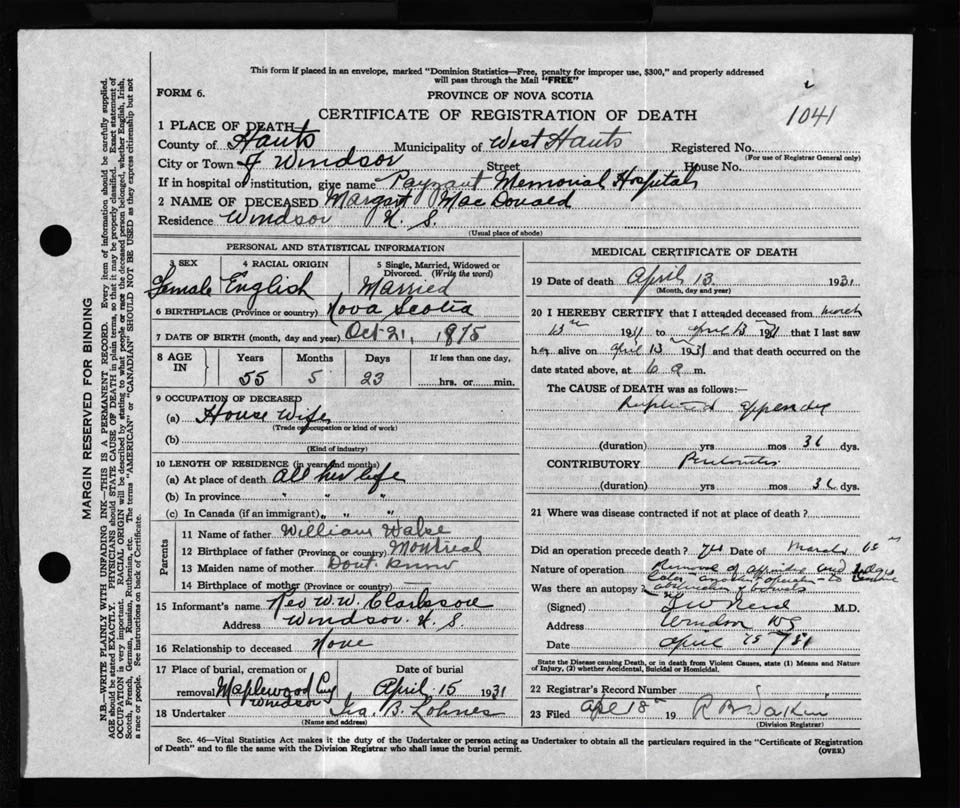 This form if placed in an envelope, marked "Dominion Statistics—Free, penalty for improper use, $300," and properly addressed
will pass through the Mail "FREE"
FORM 6.
PROVINCE OF NOVA SCOTIA
CERTIFICATE OF REGISTRATION OF DEATH
1041
1 PLACE OF DEATH
County of Hants Municipality of West Hants Registered No.
(For use of Registrar General only)
City or Town of Windsor Street House No.
If in hospital or institution, give name Payzant Memorial Hospital
2 NAME OF DECEASED Margaret MacDonald
Residence Windsor N. S.
(Usual place of abode)
MARGIN RESERVED FOR BINDING
N.B.—WRITE PLAINLY WITH UNFADING INK—THIS IS A PERMANENT RECORD. Every item of information should be carefully supplied.
AGE should be stated EXACTLY. PHYSICIANS should STATE CAUSE OF DEATH in plain terms, so that it may be properly classified. Exact statement of
OCCUPATION is very important. RACIAL ORIGIN will be described by stating to what people or race the deceased person belonged, whether English, Irish,
Scotch, French, German, Russian, Ruthenian, etc. The terms "AMERICAN" or "CANADIAN" SHOULD NOT BE USED as they express citizenship but not
a race or people. See instructions on back of Certificate.
PERSONAL AND STATISTICAL INFORMATION
3 SEX
Female
4 RACIAL ORIGIN
English
5 Single, Married, Widowed or
Divorced. (Write the word)
Married
6 BIRTHPLACE (Province or country) Nova Scotia
7 DATE OF BIRTH (month, day and year) Oct 21, 1875
8 AGE
IN
Years Months Days If less than one day,
55 5 23 hrs. or min.
9 OCCUPATION OF DECEASED
(a) House Wife
(Trade occupation or kind of work)
(b)
(Kind of industry)
10 LENGTH OF RESIDENCE (in years and months)
(a) At place of death All her life
(b) In province " " "
(c) In Canada (if an immigrant) " " "
Parents
11 Name of father William
12 Birthplace of father (Province or country) Montreal
13 Maiden name of mother Dont know
14 Birthplace of mother (Province or country)
15 Informant's name Rev W. W. Clarkson
Address Windsor N. S.
16 Relationship to deceased None
17 Place of burial, cremation or
removal Maplewood Cmy
Windsor
Date of burial
April 15 1931
18 Undertaker Ira B. Lohnes
(Name and address)
MEDICAL CERTIFICATE OF DEATH
19 Date of death April 13 1931
(Month, day and year)
20 I HEREBY CERTIFY that I attended deceased from March
1931 to April 13 1931 that I last saw
her alive on April 13 1931 and that death occurred on the
date stated above, at 6 a m.
The CAUSE of DEATH was as follows:—
Ruptured appendix
(duration) yrs mos 36 dys.
CONTRIBUTORY Peritonitis
(duration) yrs mos 36 dys.
21 Where was disease contracted if not at place of death?
Did an operation precede death? Yes Date of March
Nature of operation Removal of
Was there an autopsy?
(Signed) M.D.
Address Windsor NS
Date April 15
State the Disease causing Death, or in death from Violent Causes, state (1) Means and Nature
of Injury, (2) whether Accidental, Suicidal or Homicidal.
22 Registrar's Record Number
23 Filed 18 19
(Division Registrar)
Sec. 46—Vital Statistics Act makes it the duty of the Undertaker or person acting as Undertaker to obtain all the particulars required in the "Certificate of Registration
of Death" and to file the same with the Division Registrar who shall issue the burial permit.
(OVER)